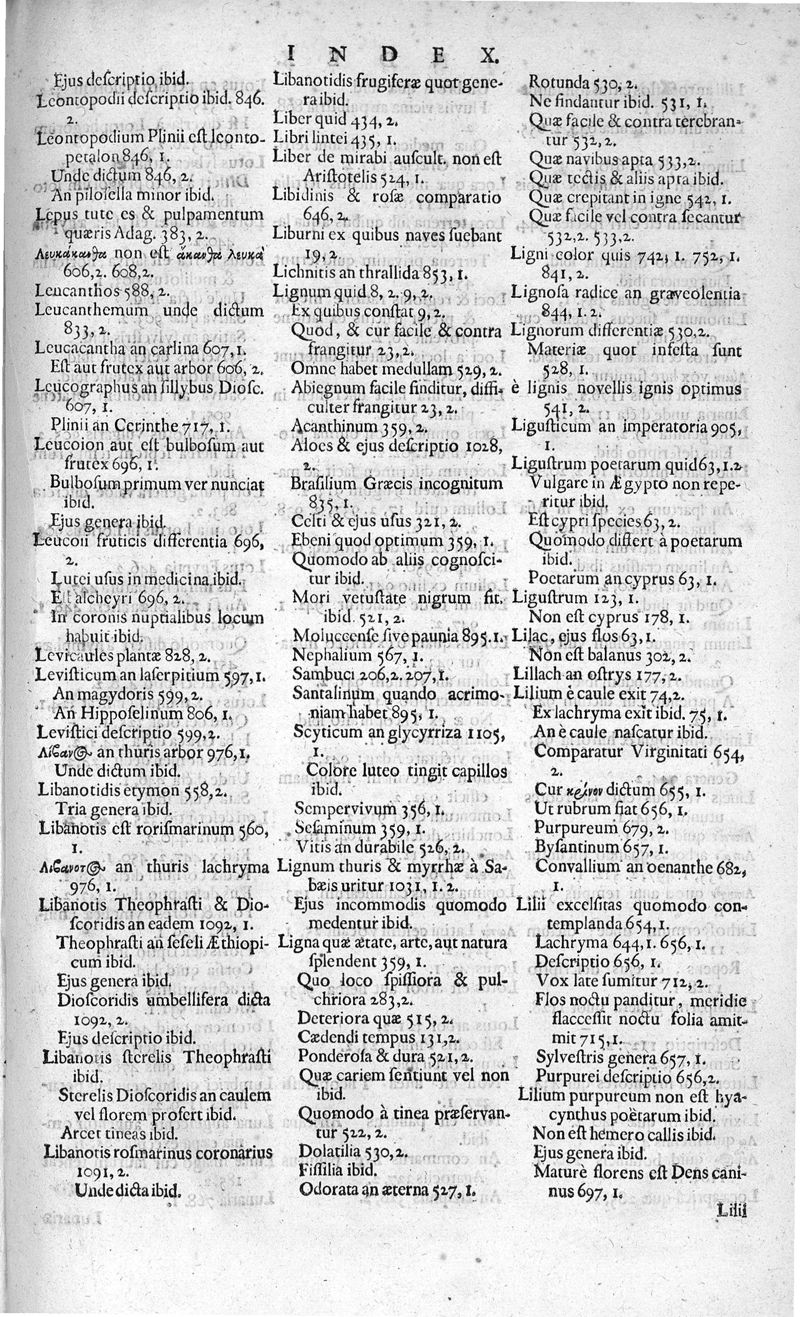 INDEX.
Ejus descriptio ibid.
Leontopodii descriptio ibid. 846.
2.
Leontopodium Plinii est leonto-
petalon 846, 1.
Unde dictum 846, 2.
An pilosella minor ibid.
Lepus tute es & pulpamentum
quæris Adag. 383, 2.
Λευκάκανθα non est ἄκανθα λευκὰ
606,2. 608,2.
Leucanthos 588, 2.
Leucanthemum unde dictum
833, 2.
Leucacantha an carlina 607, 1.
Est aut frutex aut arbor 606, 2.
Leucographus an sillybus Diosc.
607, 1.
Plinii an Cerinthe 717, 1.
Leucoion aut est bulbosum aut
frutex 696, 1.
Bulbosum primum ver nunciat
ibid.
Ejus genera ibid.
Leucoii fruticis differentia 696,
2.
Lutei usus in medicina ibid.
Est alcheyri 696, 2.
In coronis nuptialibus locum
habuit ibid.
Levicaules plantæ 828, 2.
Levisticum an laserpitium 597, 1.
An magydoris 599, 2.
An Hipposelinum 806, 1.
Levistici descriptio 599, 2.
Λίβανος an thuris arbor 976, 1.
Unde dictum ibid.
Libanotidis etymon 558, 2.
Tria genera ibid.
Libanotis est rorismarinum 560,
1.
Λιβανοτος an thuris lachryma
976, 1.
Libanotis Theophrasti & Dio-
scoridis an eadem 1092, 1.
Theophrasti an seseli Æthiopi-
cum ibid.
Ejus genera ibid.
Dioscoridis umbellifera dicta
1092, 2.
Ejus descriptio ibid.
Libanotis sterelis Theophrasti
ibid.
Sterelis Dioscoridis an caulem
vel florem profert ibid.
Arcet tineas ibid.
Libanotis rosmarinus coronarius
1091, 2.
Unde dicta ibid.
Libanotidis frugiferæ quot gene-
ra ibid.
Liber quid 434, 2.
Libri lintei 435, 1.
Liber de mirabi auscult. non est
Aristotelis 524, 1.
Libidinis & rosæ comparatio
646, 2.
Liburni ex quibus naves suebant
19, 2.
Lichnitis an thrallida 853, 1.
Lignum quid 8, 2. 9, 2.
Ex quibus constat 9, 2.
Quod, & cur facile & contra
frangitur 23, 2.
Omne habet medullam 529, 2.
Abiegnum facile finditur, diffi-
culter frangitur 23, 2.
Acanthinum 359, 2.
Aloes & ejus descriptio 1028,
2.
Brasilium Græcis incognitum
835, 1.
Celti & ejus usus 321, 2.
Ebeni quod optimum 359, 1.
Quomodo ab aliis cognosci-
tur ibid.
Mori vetustate nigrum fit.
ibid. 521, 2.
Moluccense sive paunia 895. 1.
Nephalium 567, 1.
Sambuci 206,2. 207,1.
Santalinum quando acrimo-
niam habet 895, 1.
Scyticum an glycyrriza 1105,
1.
Colore luteo tingit capillos
ibid.
Sempervivum 356, 1.
Sesaminum 359, 1.
Vitis an durabile 526, 2.
Lignum thuris & myrrhæ à Sa-
bæis uritur 1031, 1. 2.
Ejus incommodis quomodo
medentur ibid.
Ligna quæ ætate, arte, aut natura
splendent 359, 1.
Quo loco spissiora & pul-
chriora 283,2.
Deteriora quæ 515, 2.
Cædendi tempus 131,2.
Ponderosa & dura 521, 2.
Quæ cariem sentiunt vel non
ibid.
Quomodo à tinea præservan-
tur 522, 2.
Dolatilia 530, 2.
Fissilia ibid.
Odorata an æterna 527, 1.
Rotunda 530, 2.
Ne findantur ibid. 531, 1.
Quæ facile & contra terebran-
tur 532, 2.
Quæ navibus apta 533,2.
Quæ tectis & aliis apta ibid.
Quæ crepitant in igne 542, 1.
Quæ facile vel contra secantur
532,2. 533,2.
Ligni color quis 742, 1. 752, 1.
841, 2.
Lignosa radice an graveolentia
844, 1. 2.
Lignorum differentiæ 530, 2.
Materiæ quot infesta sunt
528, 1.
è lignis novellis ignis optimus
541, 2.
Ligusticum an imperatoria 905,
1.
Ligustrum poetarum quid 63, 1.2
Vulgare in Ægypto non repe-
ritur ibid.
Est cypri species 63, 2.
Quomodo differt à poetarum
ibid.
Poetarum an cyprus 63, 1.
Ligustrum 123, 1.
Non est cyprus 178, 1.
Lilac, ejus flos 63, 1.
Non est balanus 302, 2.
Lillach an ostrys 177, 2.
Lilium è caule exit 74, 2.
Ex lachryma exit ibid. 75, 1.
An è caule nascatur ibid.
Comparatur Virginitati 654,
2.
Cur κρίνον dictum 655, 1.
Ut rubrum fiat 656, 1.
Purpureum 679, 2.
Bysantinum 657, 1.
Convallium an oenanthe 682,
1.
Lilii excelsitas quomodo con-
templanda 654, 1.
Lachryma 644, 1. 656, 1.
Descriptio 656, 1.
Vox late sumitur 712, 2.
Flos noctu panditur, meridie
flaccessit noctu folia amit-
mit 715, 1.
Sylvestris genera 657, 1.
Purpurei descriptio 656, 2.
Lilium purpureum non est hya-
cynthus poëtarum ibid.
Non est hemero callis ibid.
Ejus genera ibid.
Maturè florens est Dens cani-
nus 697, 1.
Lilii